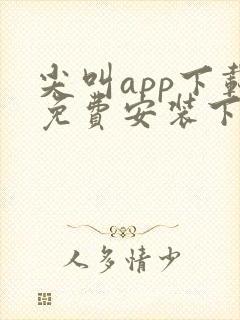 尖叫app下载
免费安装下
人多情少